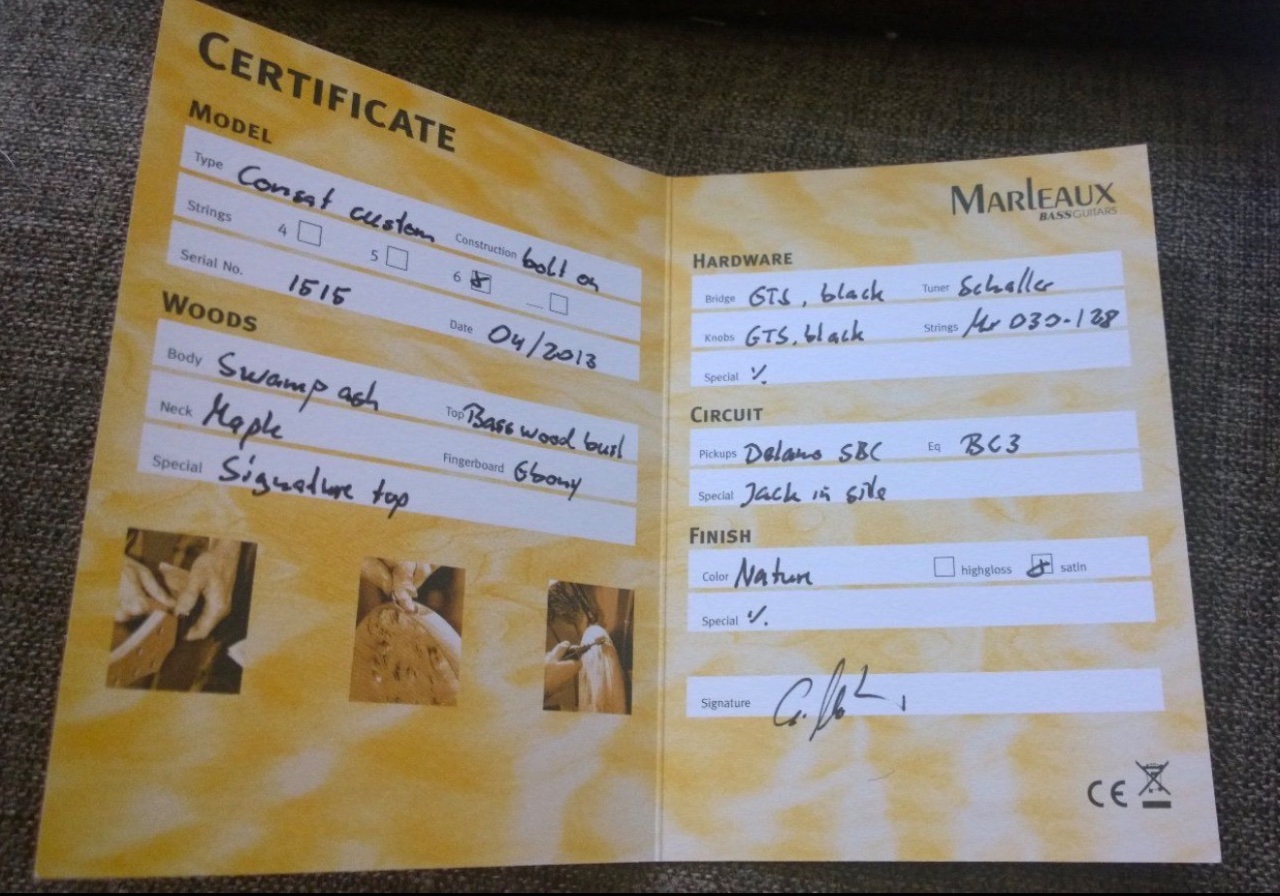 CERTIFICATE
MODEL
Type Consat custom Construction bolt on
Strings 4 5 6
Serial No. 1515 Date 04/2013
WOODS
Body Swamp ash Top Basswood burl
Neck Maple Fingerboard Ebony
Special Signature top
MARLEAUX
BASSGUITARS
HARDWARE
Bridge ETS, black Tuner Schaller
Knobs ETS, black Strings Mr 030-128
Special %
CIRCUIT
Pickups Delano SBC Eq BC3
Special Jack in side
FINISH
Color Nature highgloss satin
Special %
Signature
CE